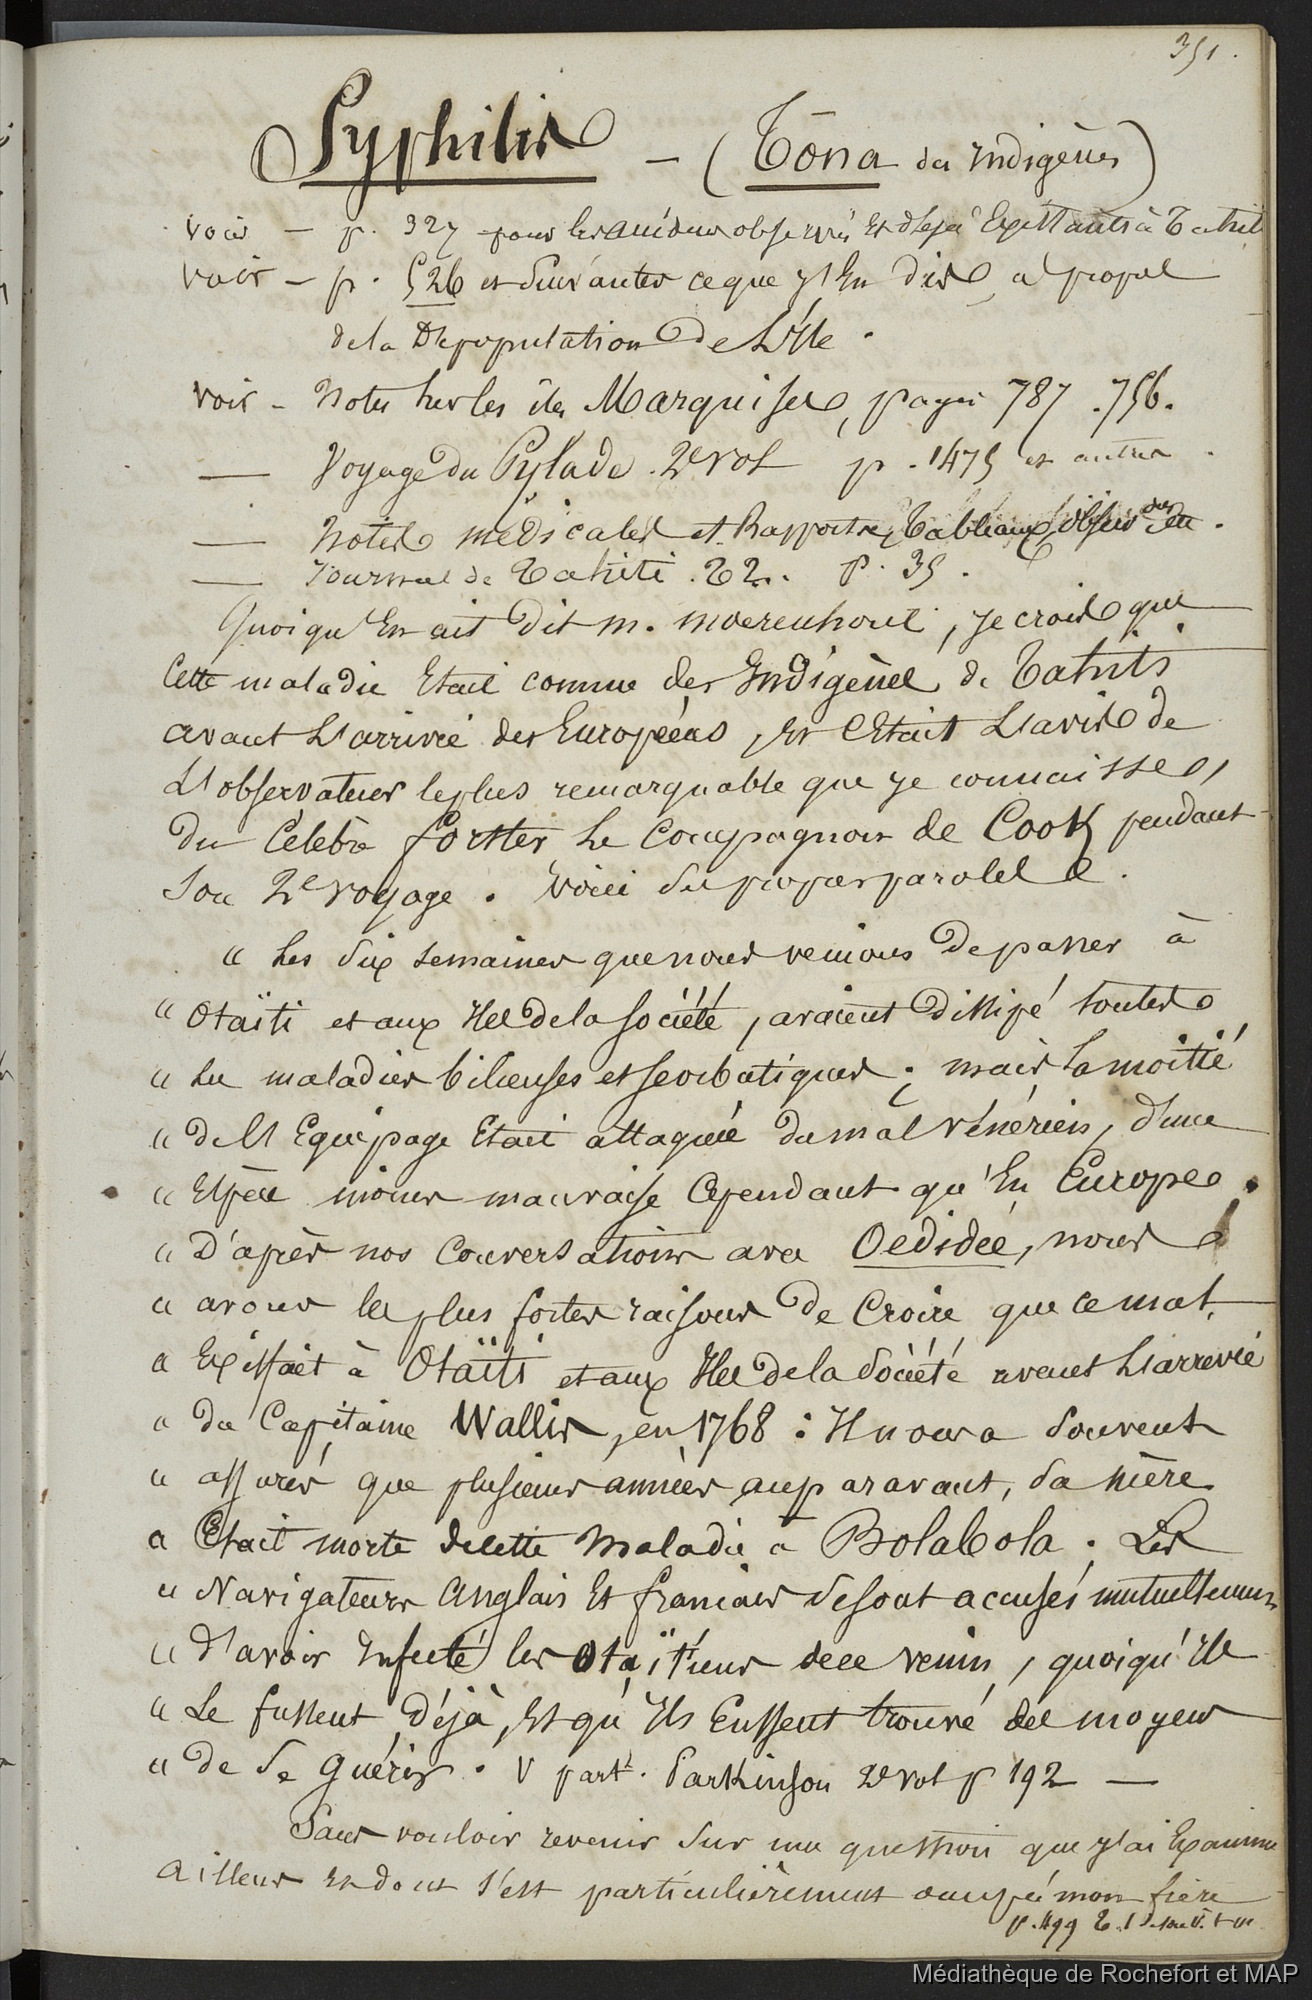 351.
Syphilis – (Tona des Indigènes)
voir – p. 327 pour les observés et déjà Existants à Tahiti
voir – p. 526 et suivantes ce que j'En dis, à propos
de la Dépopulation De L'Ile.
voir – Notes sur les îles Marquises, pages 787. 756.
— Voyage du Pylade. 2e vol p. 1475 et autres.
— Notes médicales et Rapports, Tableaux,
— Journal de Tahiti. T 2. p. 35.
Quoiqu'En ait Dit m. moerenhout, je crois que
Cette maladie Etait connue des Indigènes de Tahiti
avant L'arrivée des Européens, Et c'Etait L'avis de
L'observateur le plus remarquable que je connaisse,
du Célèbre forster, Le Compagnon de Cook pendant
Son 2e voyage. Voici ses propres paroles.
« Les six semaines que nous venions De passer à
« Otaïti et aux Iles de la Société, avaient Dissipé toutes
« les maladies bilieuses et scorbutiques; mais la moitié
« de L'Equipage Etait attaquée du mal vénérien, d'une
« Espèce moins mauvaise Cependant qu'En Europe.
« D'après nos Conversations avec Oedidée, nous
« avons les plus fortes raisons De Croire que ce mal
« Existait à Otaïti et aux Iles de la Société avant L'arrivée
« du Capitaine Wallis, en 1768 : Il nous a souvent
« assurés que plusieurs années auparavant, sa mère
« Etait morte de cette maladie à Bolabola. Les
« Navigateurs Anglais Et français se sont accusés mutuellement
« d'avoir Infecté les Otaïtiens de ce venin, quoiqu'Ils
« Le fussent Déjà, Et qu'Ils Eussent trouvé des moyens
« de Se Guérir. V part. Parkinson 2e vol p 192 —
Sans vouloir revenir sur une question que j'ai Examinée
ailleurs Et dont s'est particulièrement occupé mon frère
p. 499 T. 1
Médiathèque de Rochefort et MAP